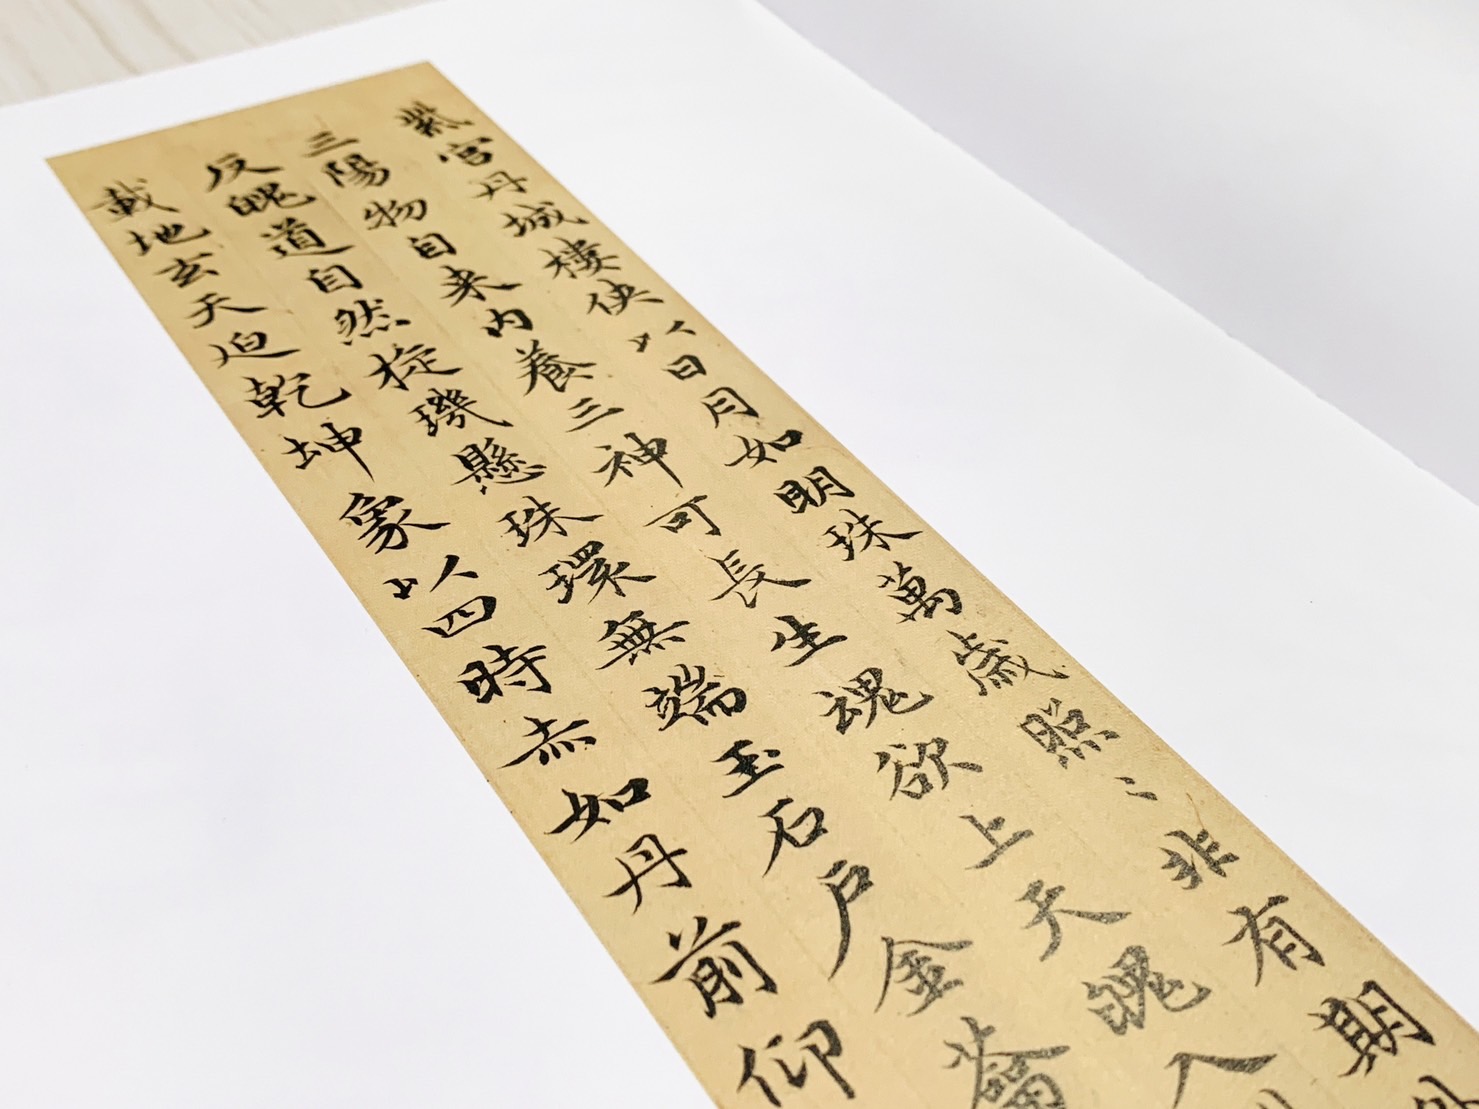 紫宮丹城樓侠以日月如明珠萬歲照〻非有期
三陽物自来内養三神可長生魂欲上天魄入
反魄道自然旋璣懸珠環無端玉石戶金籥
載地玄天迫乾坤象以四時赤如丹前仰